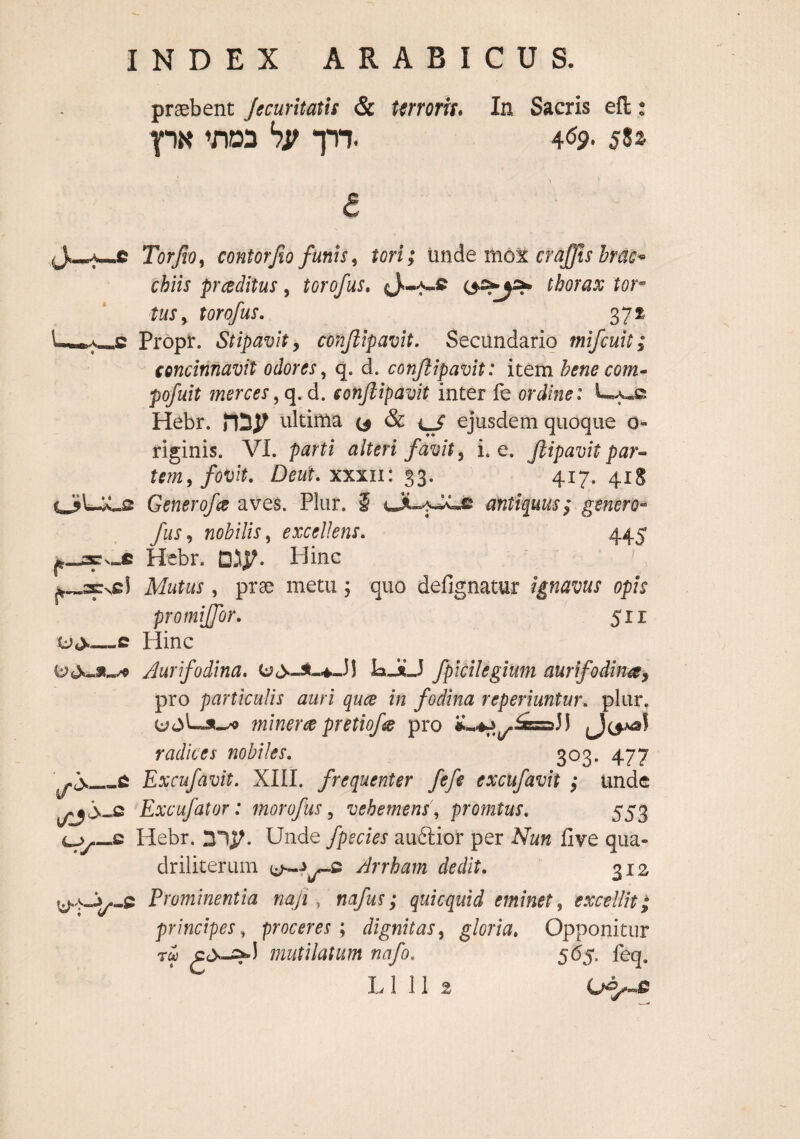 INDEX ARABICUS.
præbent ſecuritatis & terroris. In Sacris eſt:
דרך על במתי ארץ. 469. 582
ع
عبل Torſio, contorſio funis, tori; unde mox craſſis brac-
chiis præditus, toroſus. عبل thorax tor-
tus, toroſus. 372
عبا Propr. Stipavit, conſtipavit. Secundario miſcuit;
concinnavit odores, q. d. conſtipavit: item bene com-
poſuit merces, q. d. conſtipavit inter ſe ordine: عبا
Hebr. עבה ultima و & ي ejusdem quoque o-
riginis. VI. parti alteri favit, i. e. ſtipavit par-
tem, fovit. Deut. XXXII: 33. 417. 418
عتاق Generoſæ aves. Plur. عتيق antiquus; genero-
ſus, nobilis, excellens. 445
عجم Hebr. עגם. Hinc
اعجم Mutus, præ metu; quo deſignatur ignavus opis
promiſſor. 511
عدن Hinc
معدن Aurifodina. لقط المعدن ſpicilegium aurifodinæ,
pro particulis auri quæ in fodina reperiuntur. plur.
معادن mineræ pretioſæ pro الكريمة اصول
radices nobiles. 303. 477
عذر Excuſavit. XIII. frequenter ſeſe excuſavit; unde
عذور Excuſator: moroſus, vehemens, promtus. 553
عرب Hebr. ערב. Unde ſpecies auctior per Nun ſive qua-
driliterum عربن Arrham dedit. 312
عرنين Prominentia naſi, naſus; quicquid eminet, excellit;
principes, proceres; dignitas, gloria. Opponitur
τῷ اجدع mutilatum naſo. 565. ſeq.
Ll ll 2 عرض